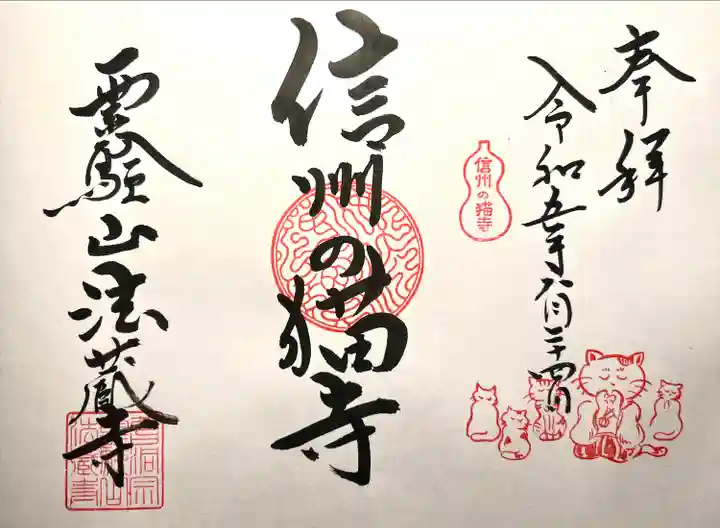 奉拝
令和五年六月二十四日
信州の猫寺
信州の猫寺
霊験山法蔵寺